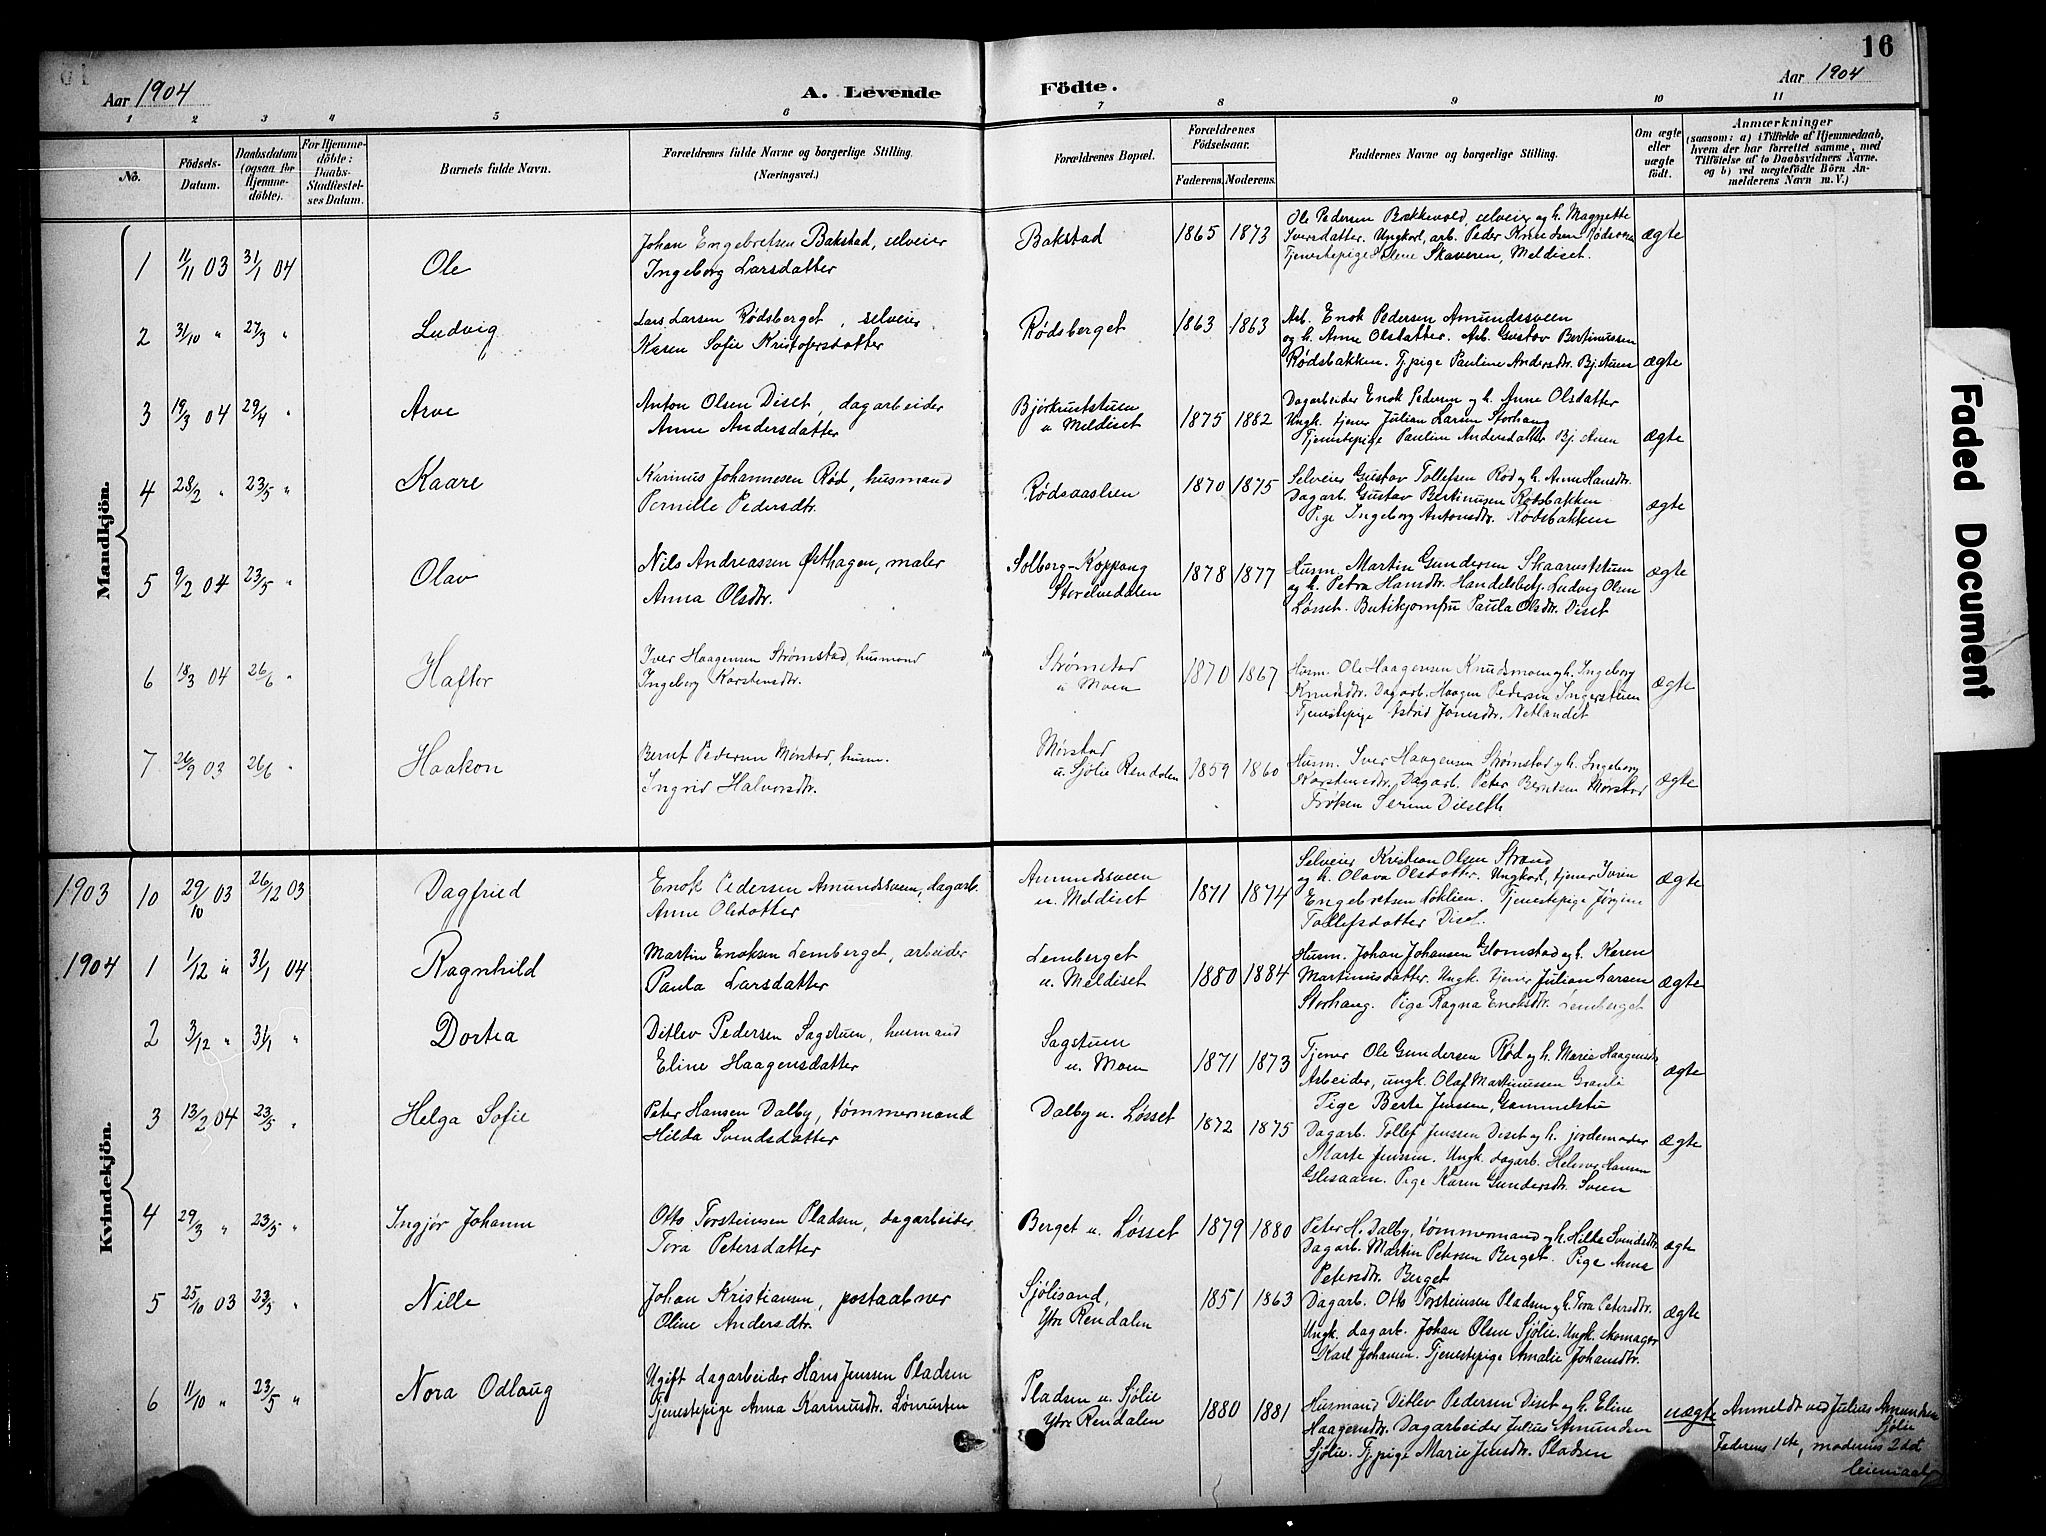 16
Aar 1904
A. Levende
Födte.
Aar 1904
1 2 3 4 5 6 7 8 9 10 11
No.
Födsels-
Datum.
Daabsdatum
(ogsaa for
Hjemme-
döbte).
For Hjemme-
döbte:
Daabs-
Stadfæstel-
ses Datum.
Barnets fulde Navn.
Forældrenes fulde Navne og borgerlige Stilling.
(Næringsvei.)
Forældrenes Bopæl.
Forældrenes
Födselsaar.
Faderens. Moderens.
Faddernes Navne og borgerlige Stilling.
Om ægte
eller
uægte
födt.
Anmærkninger
(saasom: a) i Tilfælde af Hjemmedaab,
hvem der har forrettet samme, med
Tilföielse af to Daabsvidners Navne.
og b) ved uægtefödte Börn An-
melderens Navn m. V.)
Mandkjön.
1 11/11 03 31/1 04 Ole
Johan Engebretsen Bakstad, selveier
Ingeborg Larsdatter
Bakstad
1865 1873
Ole Pedersen Bækkevold, selveier og h. Magnette
Iversdatter. Ungkarl, arb. Peder Knudsen Rødsoren
Tjenestepige Helene Skaveren, Meldiset.
ægte
2 31/10 " 27/3 " Ludvig
Lars Larsen Rødsberget, selveier
Karen Sofie Kristofersdatter
Rødsberget
1863 1863
Arb. Enok Pedersen Amundssveen
og h. Anne Olsdatter. Arb. Gustav Bertinussen
Rødsbakken. Tj.pige Pauline Andersdtr. Bj.stuen
ægte
3 19/3 04 29/4 " Arve
Anton Olsen Diset, dagarbeider
Anne Andersdatter
Bjørkruststuen
u Meldiset
1875 1882
Dagarbeider Enok Pedersen og h. Anne Olsdatter
Ungk. tjener Julian Larsen Storhaug
Tjenestepige Pauline Andersdatter Bj.stuen
ægte
4 28/2 " 23/5 " Kaare
Karinus Johannesen Rød, husmand
Pernille Pedersdtr.
Rødsaaslien
1870 1875
Selveier Gustav Tollefsen Rød og h. Anne Hansdtr.
Dagarb. Gustav Bertinusen Rødsbakken
Pige Ingeborg Antonsdtr. Rødsbakken
ægte
5 9/2 04 23/5 " Olav
Nils Andreassen Østhagen, maler
Anna Olsdtr.
Solberg-Koppang
Storelvedalen
1878 1877
Husm. Martin Gundersen Skaaruststuen
og h. Petra Hansdtr. Handelsbetj. Ludvig Olsen
Løsset. Butikjomfru Paula Olsdtr. Diset
ægte
6 18/3 04 26/6 " Haftor
Iver Haagensen Strømstad, husmand
Ingeborg Karstensdtr.
Strømstad
u Moen
1870 1867
Husm. Ole Haagensen Knudsmoen og h. Ingeborg
Knudsdtr. Dagarb. Haagen Pedersen Ingerstuen
Tjenestepige Astrid Jonesdtr. Netlandet
ægte
7 26/9 03 26/6 " Haakon
Bernt Pedersen Mørstad, husm.
Ingrid Halvorsdtr.
Mørstad
u. Sjölie Rendalen
1859 1860
Husm. Iver Haagensen Strømstad og h. Ingeborg
Karstensdtr. Dagarb. Peter Berntsen Mørstad
Frøken Serine Diseth
ægte
Kvindekjön.
1903 10 29/10 03 26/12 03 Dagfried
Enok Pedersen Amundssveen, dagarb.
Anne Olsdatter
Amundssveen
u. Meldiset
1871 1874
Selveier Kristian Olsen Strand
og h. Olava Olsdatter. Ungkarl, tjener Iven
Engebretsen Løhlien. Tjenestepige Jørgine
Tollefsdatter Diset.
ægte
1904 1 1/12 " 31/1 04 Ragnhild
Martin Enoksen Lemberget, arbeider
Paula Larsdatter
Lemberget
u. Meldiset
1880 1884
Husm. Johan Johansen Glomstad og h. Karen
Martinusdatter. Ungk. tjener Julian Larsen
Storhaug. Pige Ragna Enoksdtr. Lemberget
ægte
2 3/12 " 31/1 " Dortea
Ditlev Pedersen Sagstuen, husmand
Eline Haagensdatter
Sagstuen
u. Moen
1871 1873
Tjener Ole Gundersen Rød og h. Marie Haagensdtr.
Arbeider, ungk. Olaf Martinussen Granli
Pige Berte Jenssen, Gammelstu
ægte
3 13/2 04 23/5 " Helga Sofie
Peter Hansen Dalby, tømmermand
Hilda Svendsdatter
Dalby u. Løsset
1872 1875
Dagarb. Tollef Jenssen Diset og h. jordemoder
Marte Jenssen. Ungk. dagarb. Helmer Hansen
Glesaaen. Pige Karen Gundersdtr. Sveen
ægte
4 29/3 " 23/5 " Ingjør Johanne
Otto Torsteinsen Pladsen, dagarbeider,
Tora Petersdatter
Berget u. Løsset
1879 1880
Peter H. Dalby, tømmermand og h. Hilda Svendsdtr.
Dagarb. Martin Petersen Berget. Pige Anna
Petersdtr. Berget
ægte
5 25/10 03 23/5 " Nille
Johan Kristiansen, postaabner
Oline Andersdtr.
Sjölisand,
Ytre Rendalen
1851 1863
Dagarb. Otto Torsteinsen Pladsen og h. Tora Petersdtr.
Ungk. dagarb. Johan Olsen Sjölie. Ungk. skomager
Karl Johansen. Tjenestepige Amalie Johansdtr.
ægte
6 11/10 " 23/5 " Nora Odlaug
Ugift dagarbeider Hans Jenssen Pladsen
Tjenestepige Anna Karinusdtr. Lønrusten
Pladsen u. Sjölie
Ytre Rendalen
1880 1881
Husmand Ditlev Pedersen Diset og h. Eline
Haagensdtr. Dagarbeider Julius Amundsen
Sjölie. Tj.pige Marie Jensdtr. Pladsen
uægte
Anmeldt ved Julius Amundsen
Sjölie
Faderens 1ste, moderens 2det
leiermaal
Faded Document